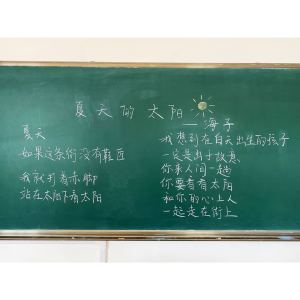 夏天的太阳
——海子
夏天
如果这条街没有鞋匠
我就打着赤脚
站在太阳下看太阳
我想到在白天出生的孩子
一定是出于故意
你来人间一趟
你要看看太阳
和你的心上人
一起走在街上